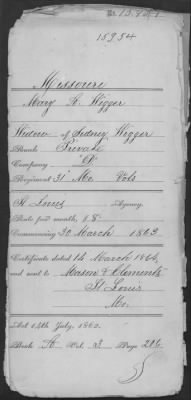 15954
Missouri
Mary A. Wigger
Widow of Sidney Wigger
Rank Private
Company "D"
Regiment 31" Mo Vols
St Louis Agency.
Rate per month, $8
Commencing 30 March 1863
Certificate dated 14 March 1864
and sent to Mason & Clements
St Louis
Mo.
Act 14th July, 1862.
Book A Vol. 3 Page 206